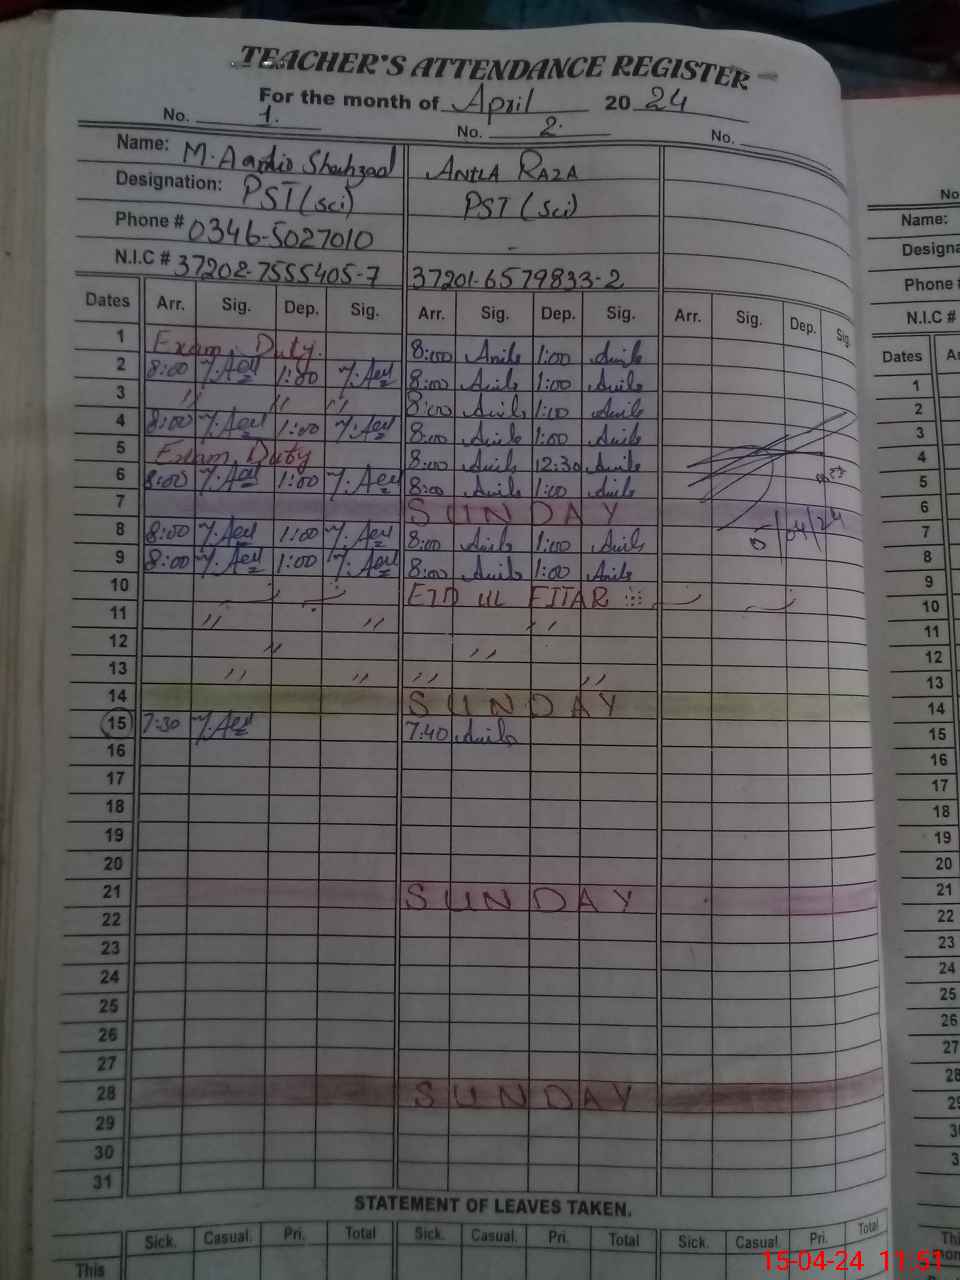 TEACHER'S ATTENDANCE REGISTER
For the month of April 2024
No. 1. No. 2. No.
Name: M. Aandio Shahzad ANILA RAZA
Designation: PST (Sci) PST (Sci)
Phone # 0346-5027010 -
N.I.C # 37202-7555405-7 37201-6579833-2
Dates Arr. Sig. Dep. Sig. Arr. Sig. Dep. Sig. Arr. Sig. Dep. Sig.
1 Exam Duty. 8:00 Anila 1:00 Anila
2 8:00 1:00 8:00 Anila 1:00 Anila
3 " " " 8:00 Anila 1:00 Anila
4 8:00 1:00 8:00 Anila 1:00 Anila
5 Exam Duty 8:00 Anila 12:30 Anila
6 8:00 1:00 8:00 Anila 1:00 Anila
7 SUNDAY 5/04/24
8 8:00 1:00 8:00 Anila 1:00 Anila
9 8:00 1:00 8:00 Anila 1:00 Anila
10 EID UL FITAR
11 " " "
12 " "
13 " " " "
14 SUNDAY
15 7:30 7:40 Anila
16
17
18
19
20
21 SUNDAY
22
23
24
25
26
27
28 SUNDAY
29
30
31
STATEMENT OF LEAVES TAKEN.
Sick. Casual. Pri. Total Sick. Casual. Pri. Total Sick. Casual. Pri. Total
This
No
Name:
Designa
Phone
N.I.C #
Dates A
1
2
3
4
5
6
7
8
9
10
11
12
13
14
15
16
17
18
19
20
21
22
23
24
25
26
27
28
29
3
3
15-04-24 11:51